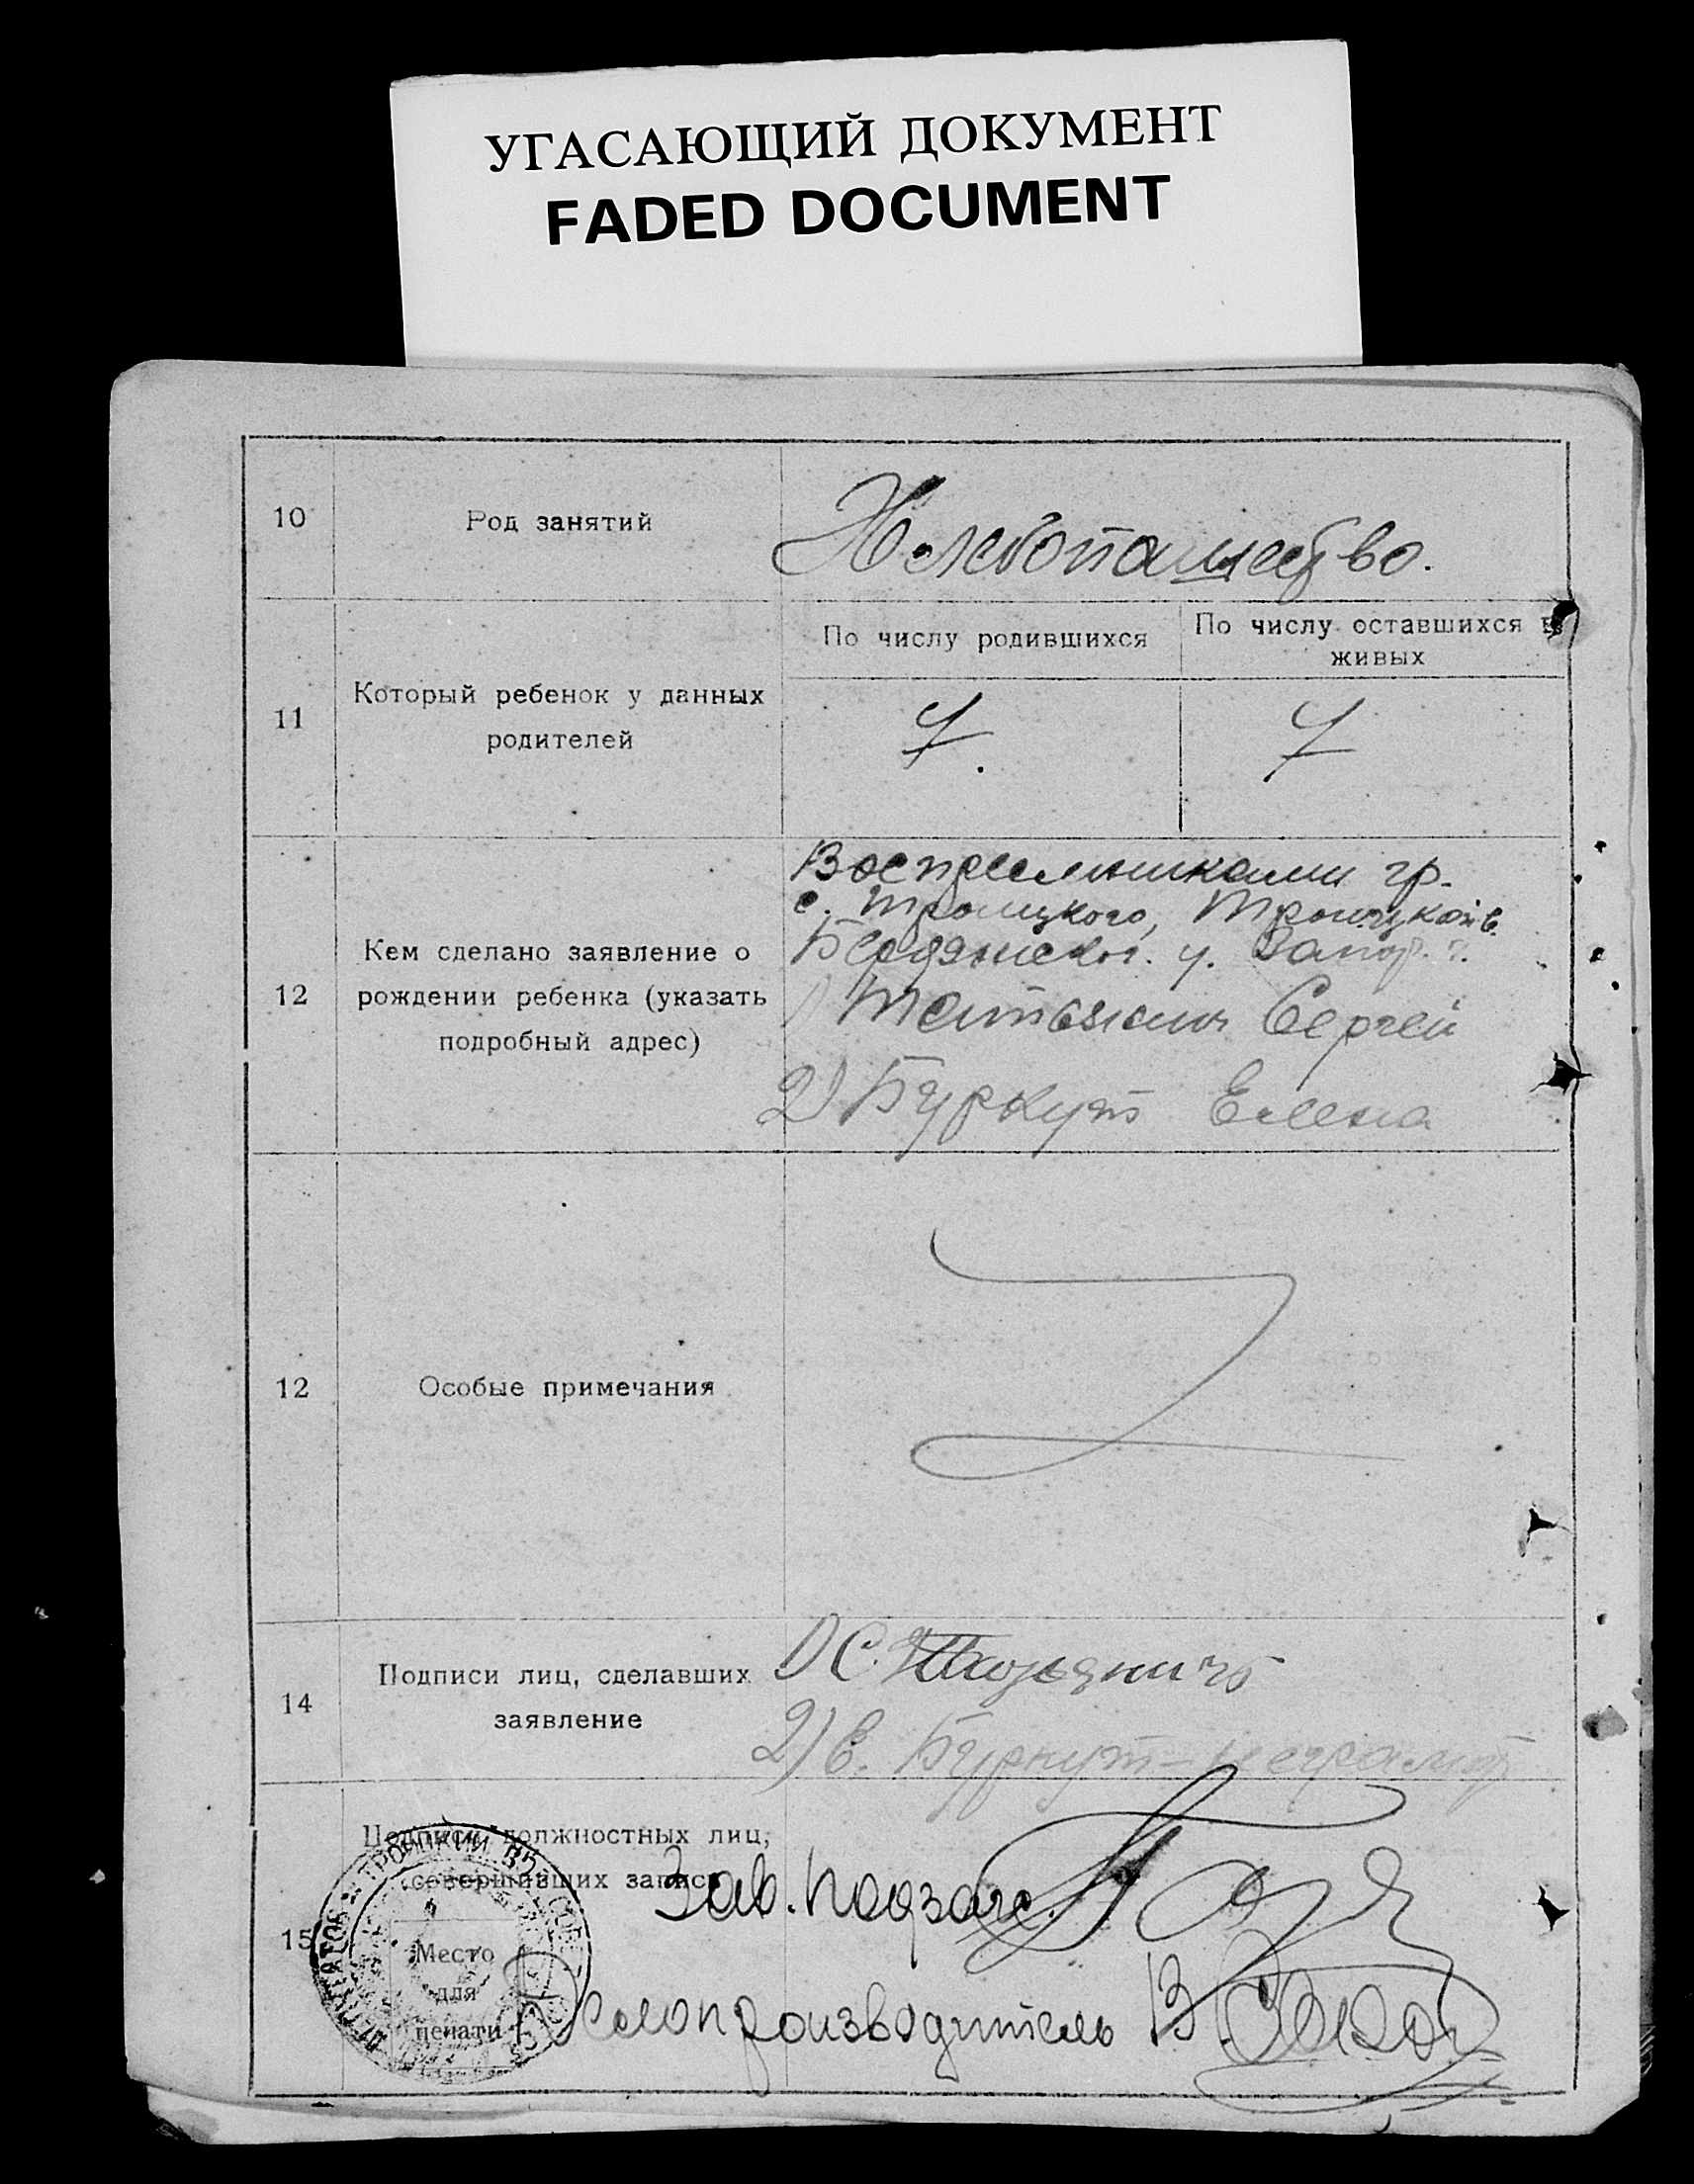 УГАСАЮЩИЙ ДОКУМЕНТ
FADED DOCUMENT
10
Род занятий
Хлебопашество.
11
Который ребенок у данных
родителей
По числу родившихся
По числу оставшихся в
живых
7.
7
12
Кем сделано заявление о
рождении ребенка (указать
подробный адрес)
Восприемниками гр.
с. Троицкого, Троицкой в.
Бердянског. у. Запор. г.
Сергей
2) Буркут Елена
12
Особые примечания
14
Подписи лиц, сделавших
заявление
1) С.
2) Е. Буркут - неграмот
15
Подписи должностных лиц,
совершивших запись
Зав. подзагс.
Место
для
печати
Делопроизводитель В.